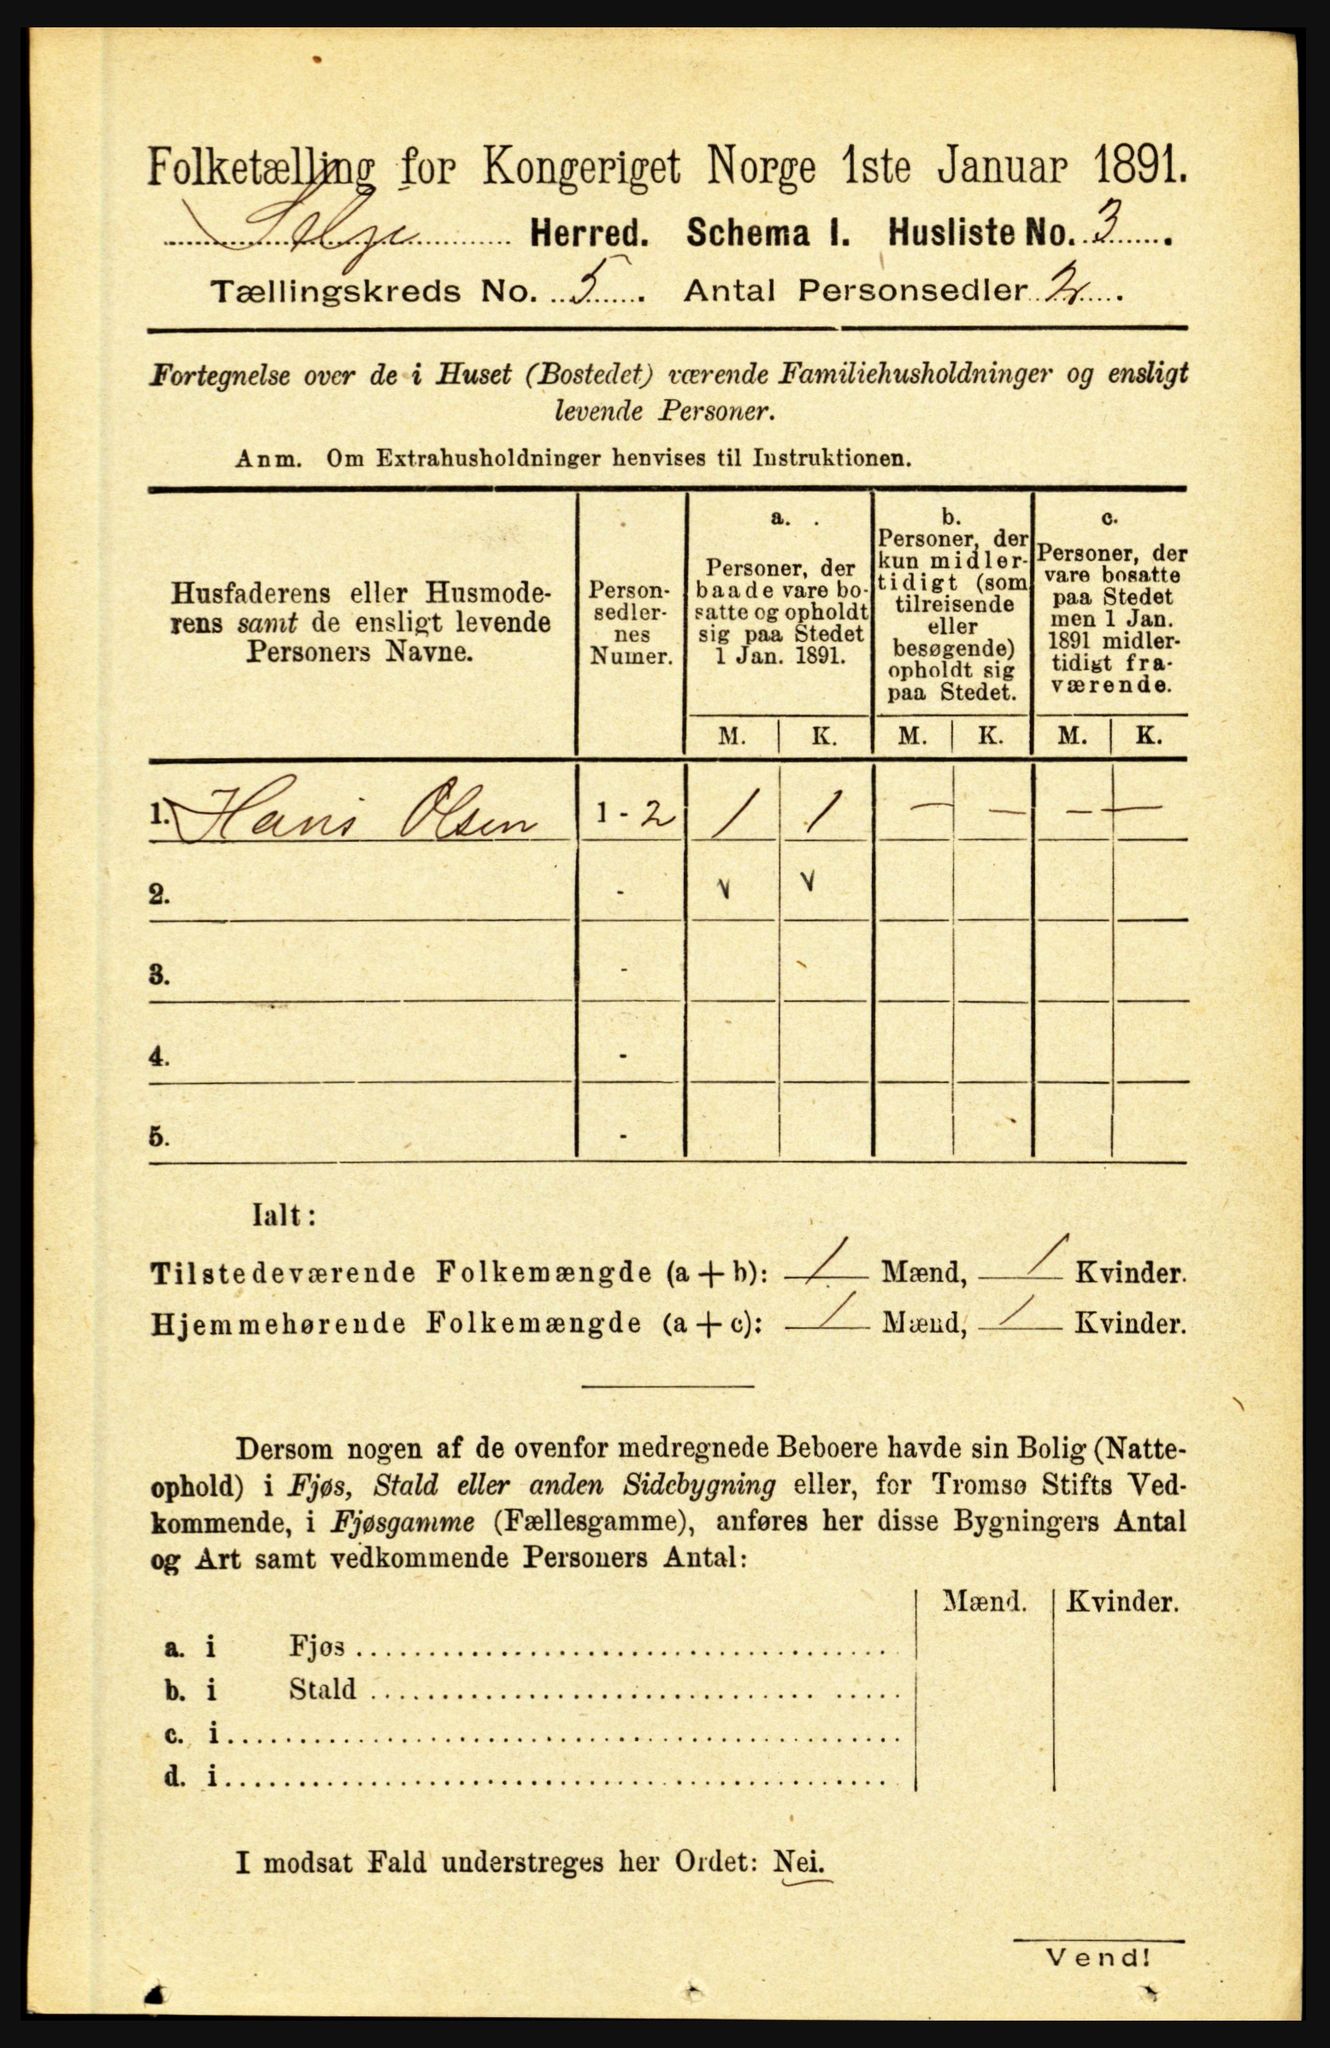 Folketælling for Kongeriget Norge 1ste Januar 1891.
Selje Herred. Schema I. Husliste No. 3.
Tællingskreds No. 5. Antal Personsedler 2.
Fortegnelse over de i Huset (Bostedet) værende Familiehusholdninger og ensligt
levende Personer.
Anm. Om Extrahusholdninger henvises til Instruktionen.
Husfaderens eller Husmode-
rens samt de ensligt levende
Personers Navne.
Person-
sedler-
nes
Numer.
a.
Personer, der
baade vare bo-
satte og opholdt
sig paa Stedet
1 Jan. 1891.
b.
Personer, der
kun midler-
tidigt (som
tilreisende
eller
besøgende)
opholdt sig
paa Stedet.
c.
Personer, der
vare bosatte
paa Stedet
men 1 Jan.
1891 midler-
tidigt fra-
værende.
M. K. M. K. M. K.
1. Hans Olsen 1 - 2 1 1 — — — —
2. - v v
3. -
4. -
5. -
Ialt:
Tilstedeværende Folkemængde (a + b): 1 Mænd, 1 Kvinder.
Hjemmehørende Folkemængde (a + c): 1 Mænd, 1 Kvinder.
Dersom nogen af de ovenfor medregnede Beboere havde sin Bolig (Natte-
ophold) i Fjøs, Stald eller anden Sidebygning eller, for Tromsø Stifts Ved-
kommende, i Fjøsgamme (Fællesgamme), anføres her disse Bygningers Antal
og Art samt vedkommende Personers Antal:
Mænd. Kvinder.
a. i Fjøs
b. i Stald
c. i
d. i
I modsat Fald understreges her Ordet: Nei.
Vend!